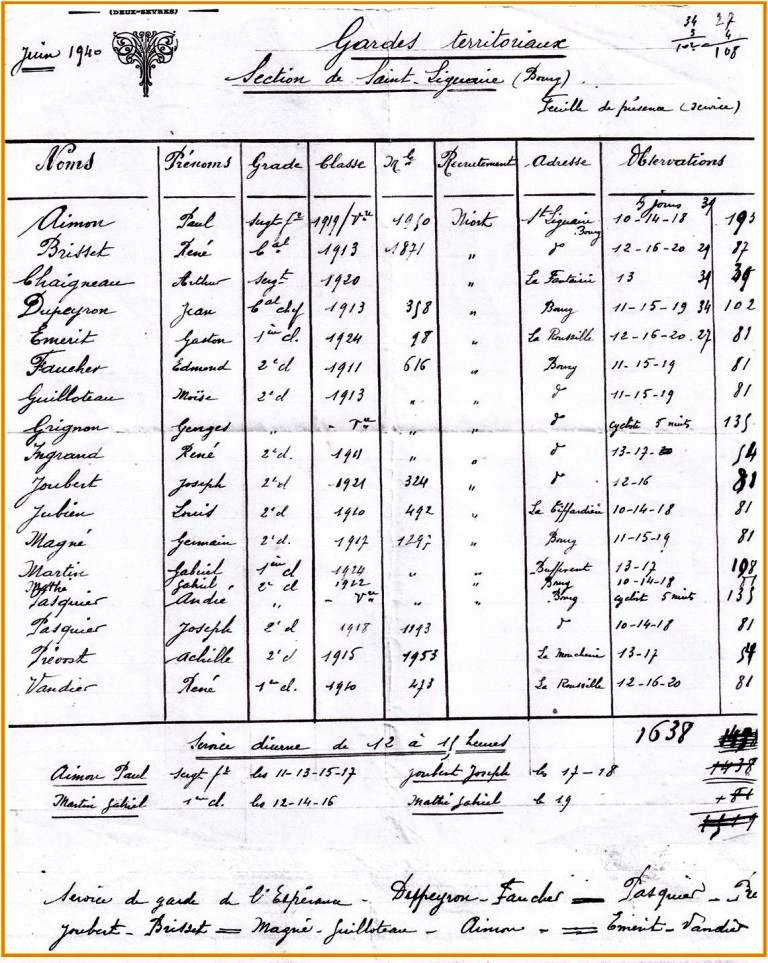 (DEUX-SÈVRES)
Juin 1940
34 27
3 4
102 108
Gardes territoriaux
Section de Saint-Liguaire (Bourg)
Feuille de présence (service)
Noms Prénoms Grade Classe Mle Recrutement Adresse Observations
5 jours 39
Aimon Paul sergt fr 1919/Vre 1950 Niort St Liguaire Bourg 10-14-18 195
Brisset René Cal 1913 1871 " d° 12-16-20 29 87
Chaigneau Arthur sergt 1920 " La Fontaine 13 39 39
Dupeyron Jean Cal chef 1913 358 " Bourg 11-15-19 34 102
Emerit Gaston 1ère cl 1924 98 " La Roussille 12-16-20 27 81
Faucher Edmond 2e cl 1911 616 " Bourg 11-15-19 81
Guilloteau Moïse 2e cl 1913 " " d° 11-15-19 81
Grignon Georges " - Vre " " d° cyclist 5 nuits 135
Ingrand René 2e cl. 1911 " " d° 13-17 54
Joubert Joseph 2e cl 1921 324 " d° 12-16 81
Jubien Louis 2e cl 1910 492 " La Tiffardière 10-14-18 81
Magné Germain 2e cl. 1917 " Bourg 11-15-19 81
Martin Gabriel 1ère cl 1924 " " 13-17 108
Mathé Gabriel 2e cl 1922 " " Bourg 10-14-18
Pasquier André " - Vre " " Bourg cyclist 5 nuits 135
Pasquier Joseph 2e cl 1918 1193 d° 10-14-18 81
Prévost Achille 2e cl 1915 1953 La Moucherie 13-17 54
Vandier René 1ère cl. 1910 473 La Roussille 12-16-20 81
Service diurne de 12 à 15 heures 1638
Aimon Paul sergt fr les 11-13-15-17 Joubert Joseph les 17-18 1438
Martin Gabriel 1ère cl. les 12-14-16 Mathé Gabriel le 19 + 81
Service de garde de l'Espérance - Duppeyron - Faucher = Pasquier - Pré
Joubert - Brisset = Magné - Guilloteau - Aimon - = Emerit - Vandier